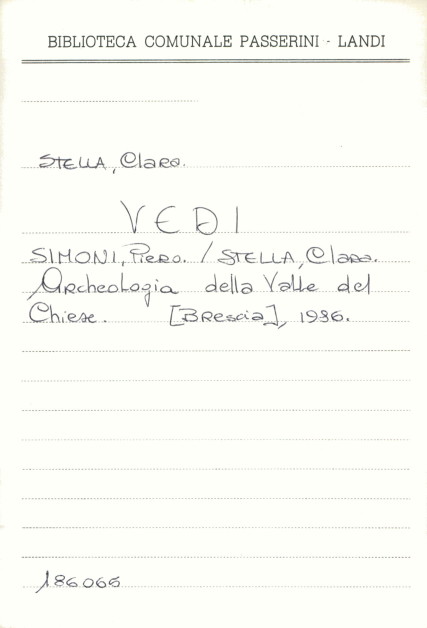 BIBLIOTECA COMUNALE PASSERINI - LANDI
STELLA, Clara.
VEDI
SIMONI, Piero. / STELLA, Clara.
Archeologia della Valle del
Chiese. [Brescia], 1986.
186066